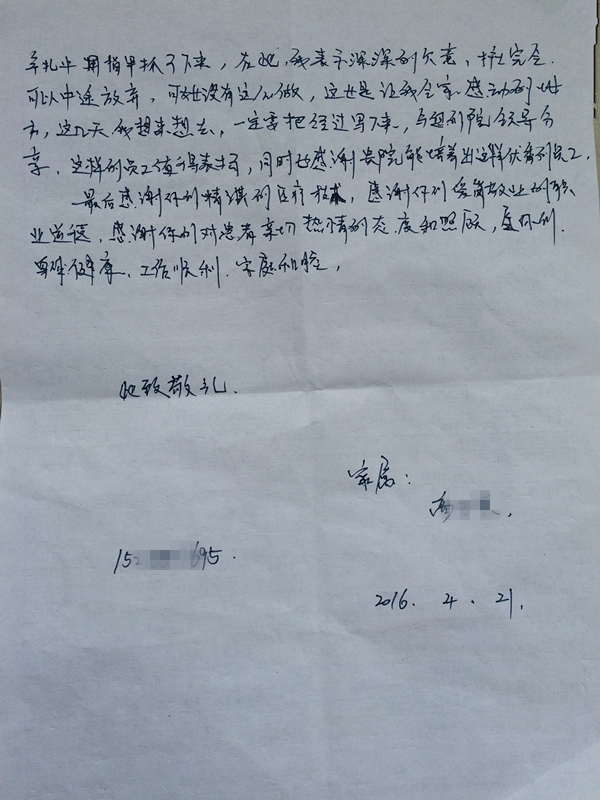 羊扎中用指甲抓了下来，在此，我表示深深的欠意，护士完全
可以中途放弃，可她没有这么做，这也是让我全家感动的地
方，这几天我想来想去，一定要把经过写下来，与超的院领导分
享，这样的员工值得表扬，同时也感谢贵院能培养出这样优秀的员工。
最后感谢你们精湛的医疗技术，感谢你们爱岗敬业的职
业道德，感谢你们对患者亲切热情的态度和照顾，愿你们
身体健康、工作顺利、家庭和睦，
此致敬礼.
家属：
152 695.
2016. 4. 21.